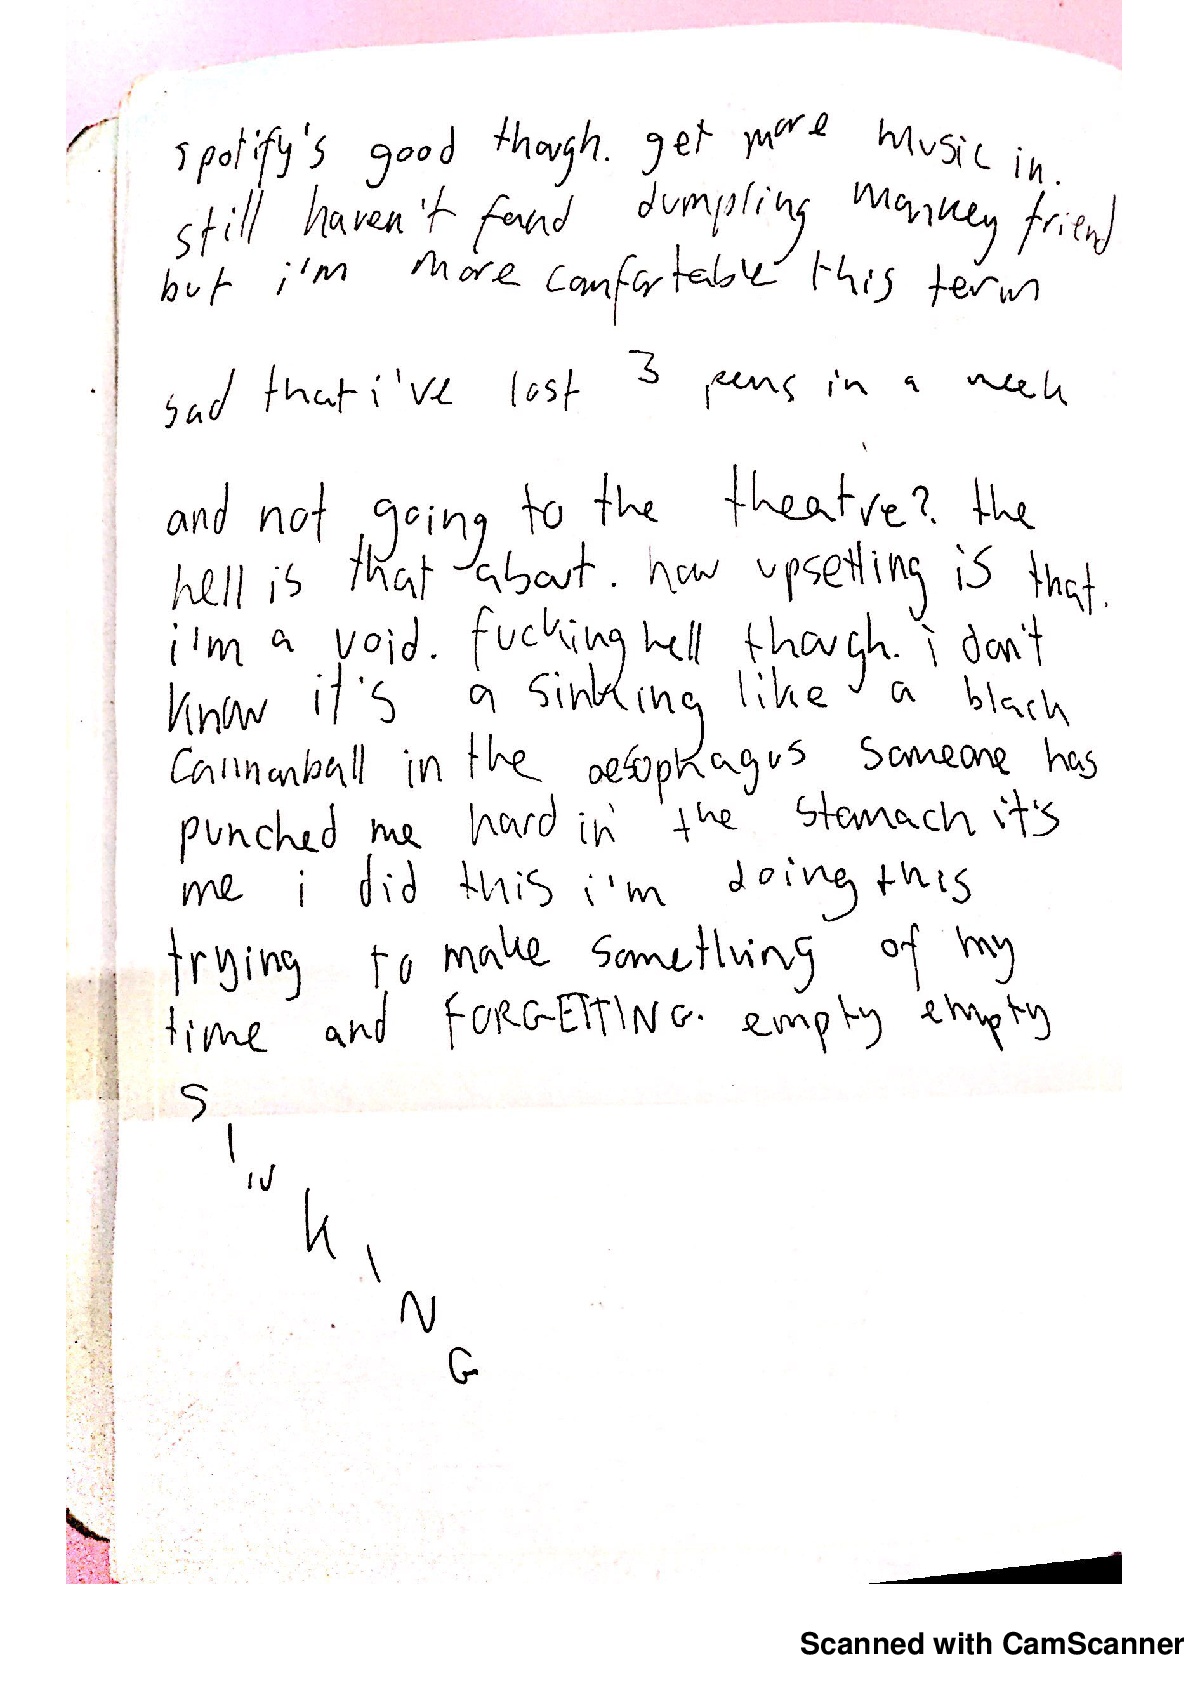 spotify's good though. get more music in.
still haven't found dumpling monkey friend
but i'm more comfortable this term
sad that i've lost 3 pens in a week
and not going to the theatre? the
hell is that about. how upsetting is that.
i'm a void. fucking hell though. i don't
know it's a sinking like a black
cannonball in the oesophagus someone has
punched me hard in the stomach it's
me i did this i'm doing this
trying to make something of my
time and FORGETTING. empty empty
S
I
N
K
I
N
G
Scanned with CamScanner